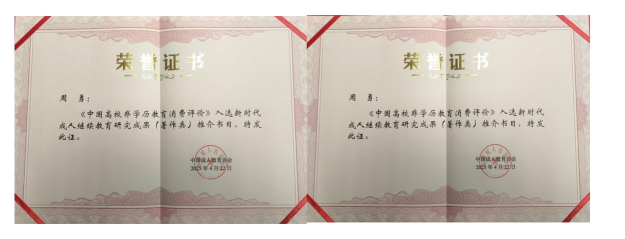 荣誉证书
周 勇：
《中国高校非学历教育消费评价》入选新时代
成人继续教育研究成果（著作类）推介书目，特发
此证。
中国成人教育协会
2023 年 4 月 22 日
荣誉证书
周 勇：
《中国高校非学历教育消费评价》入选新时代
成人继续教育研究成果（著作类）推介书目，特发
此证。
中国成人教育协会
2023 年 4 月 22 日